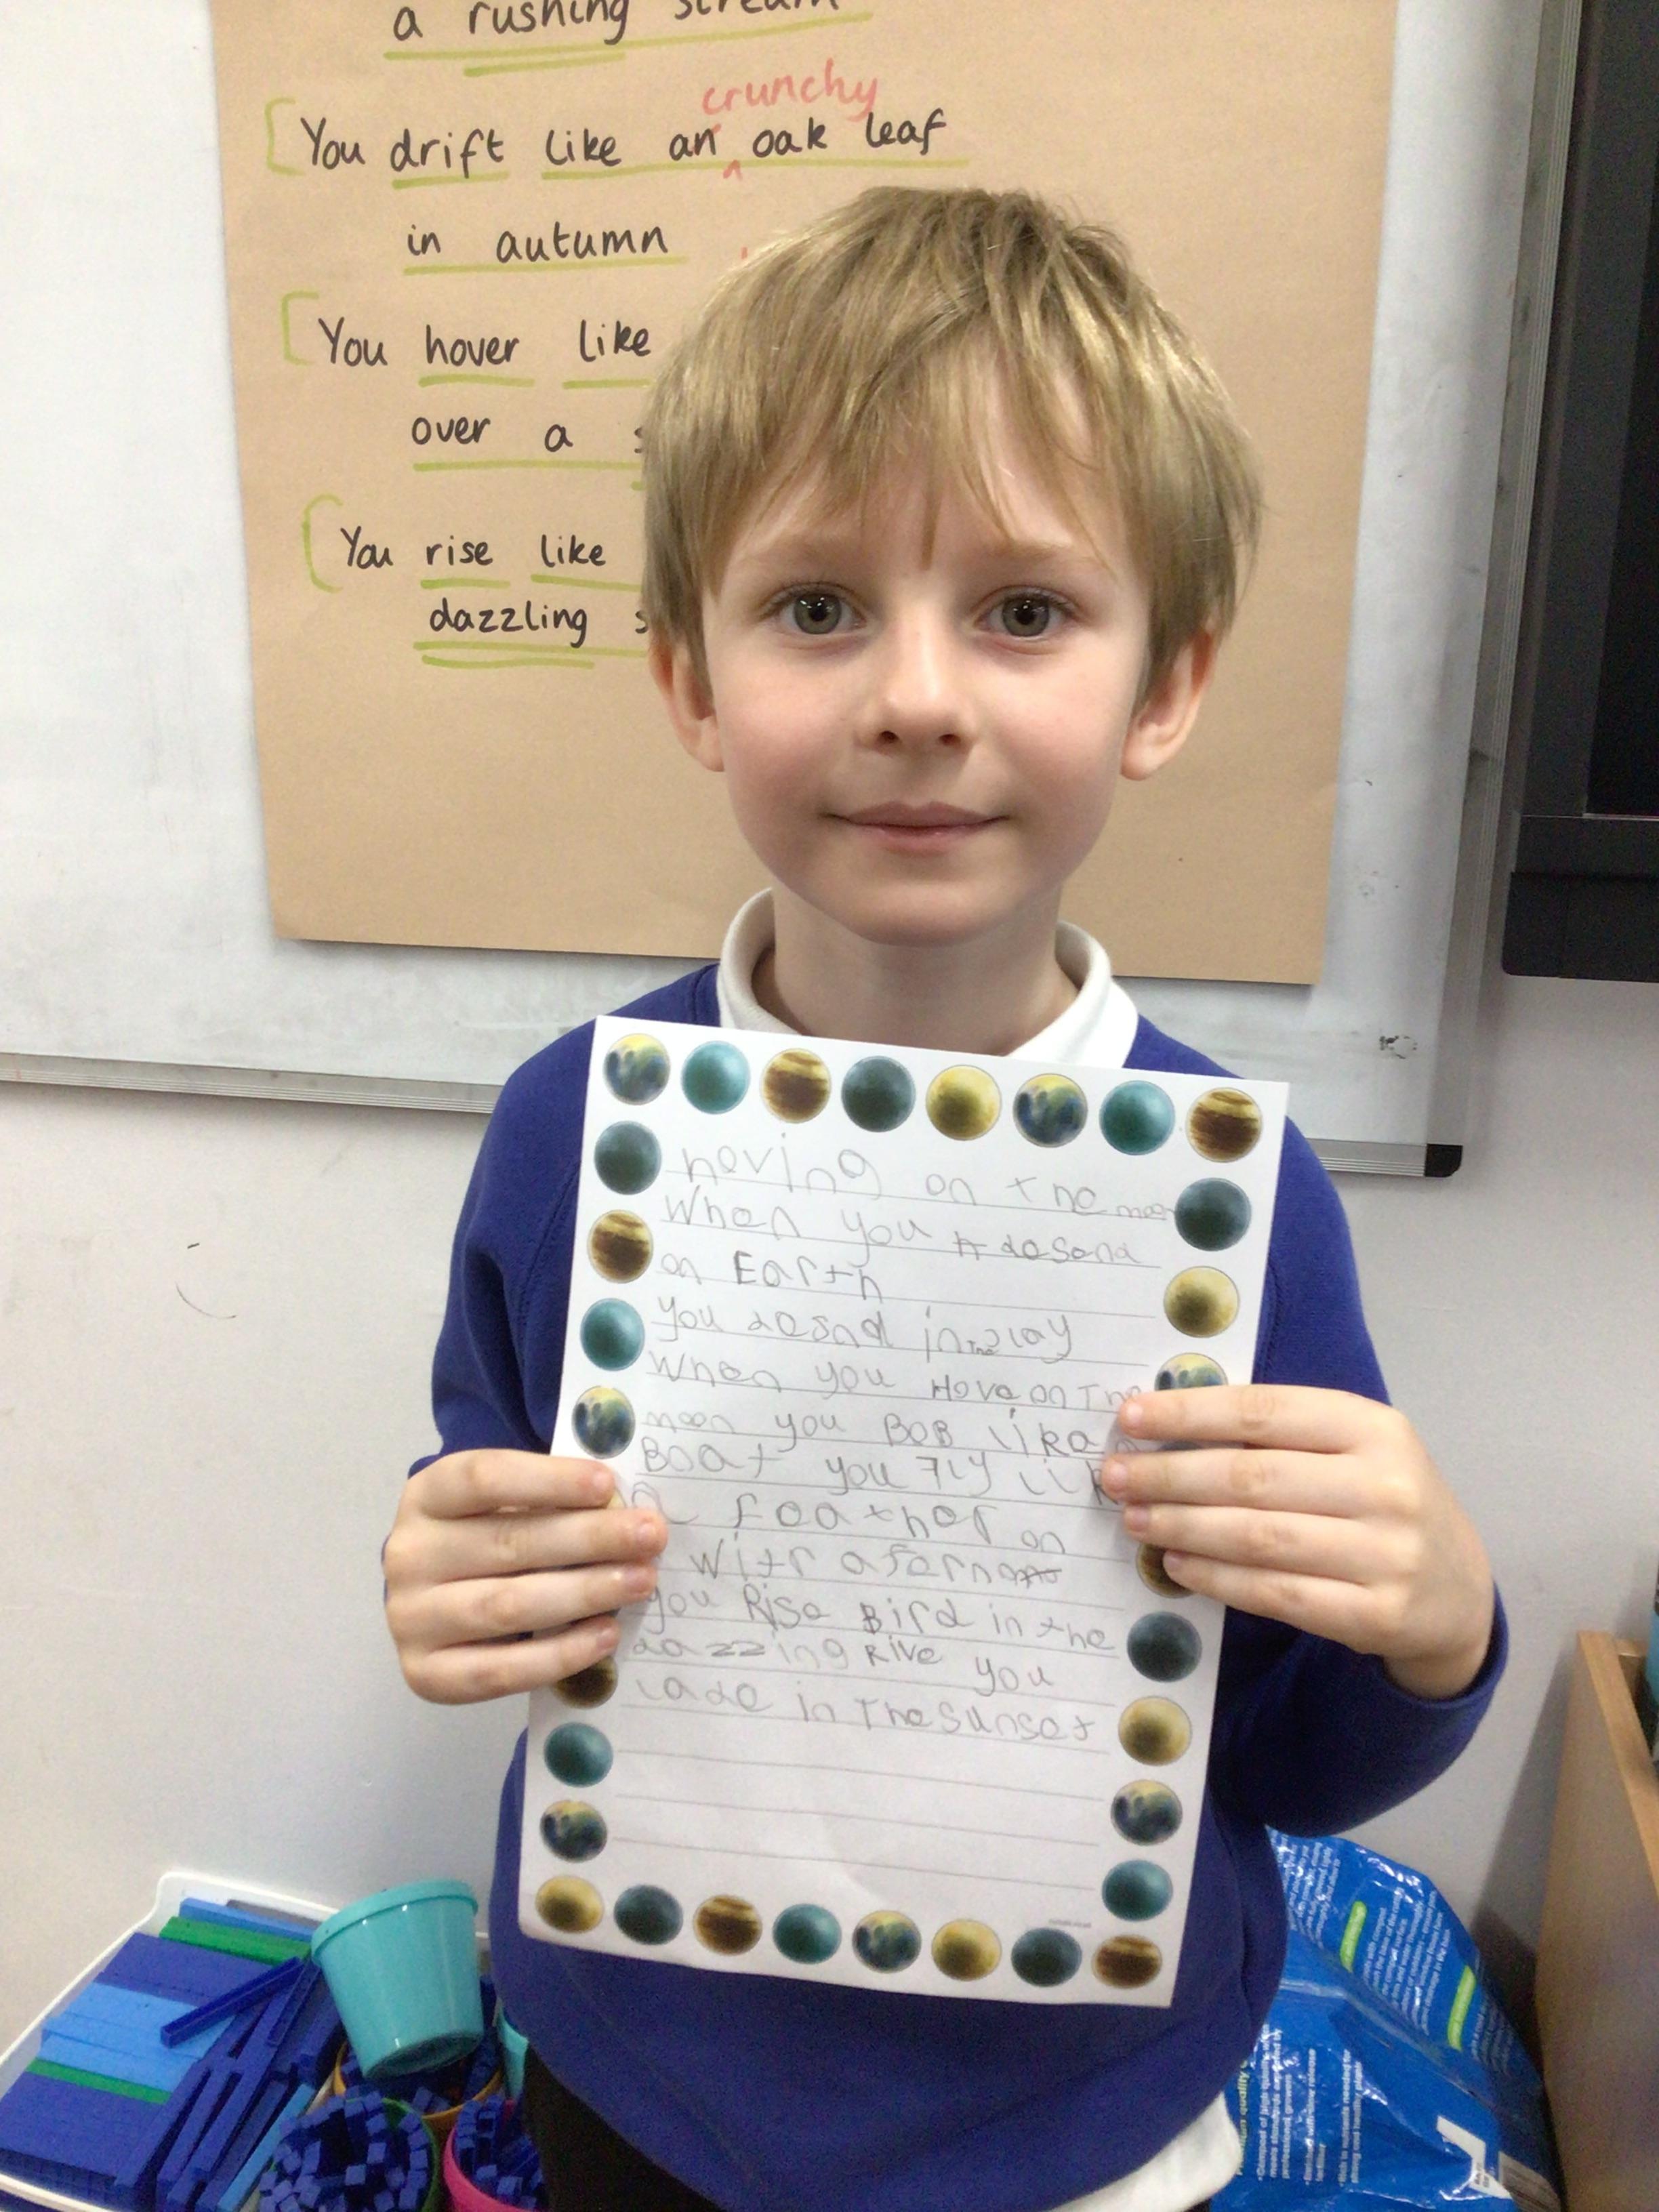 a rushing stream
crunchy
You drift like an oak leaf
in autumn
You hover like
over a s
You rise like
dazzling s
moving on the moon
When you desend
on Earth
you desnd in the
When you Move on The
moon you BOB like a
Boat you Fly lik
a feather on
a witr afernoon
you Rise Bird in the
dazzing Rive you
lade in The sunset